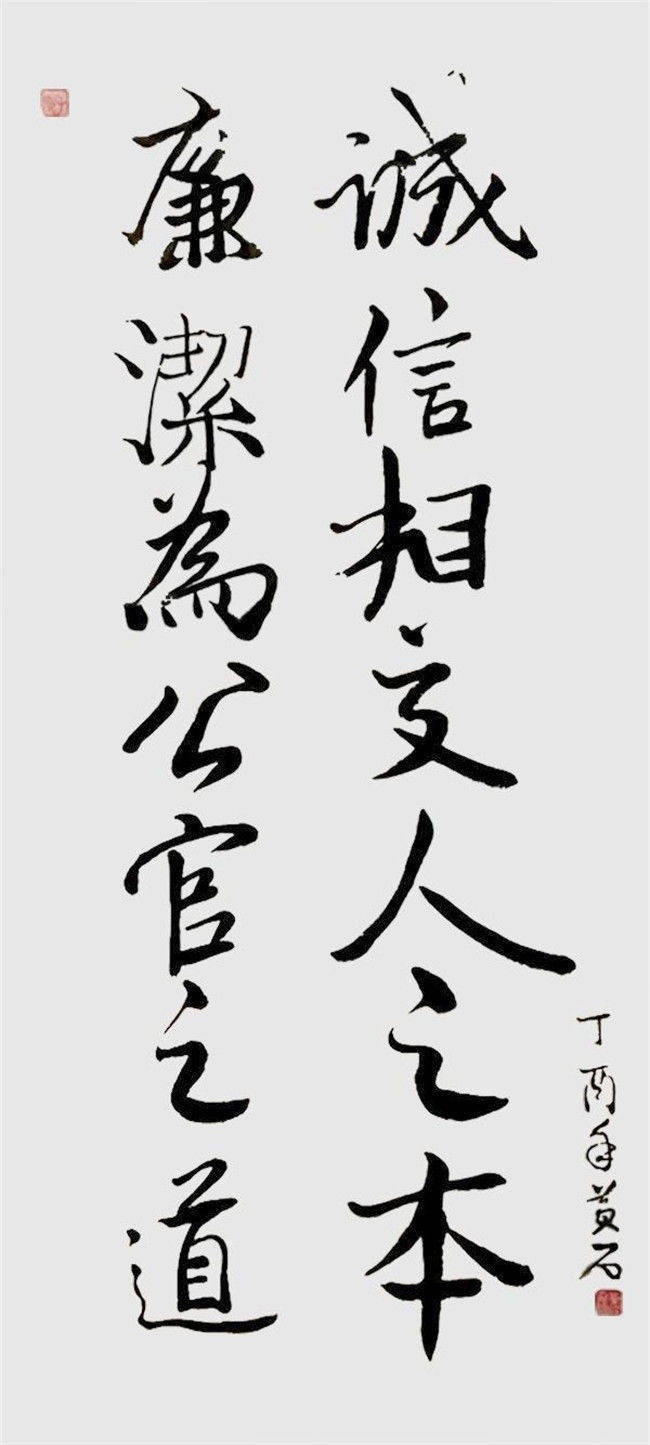 誠信相交人之本
廉潔為公官之道
丁酉年黄石